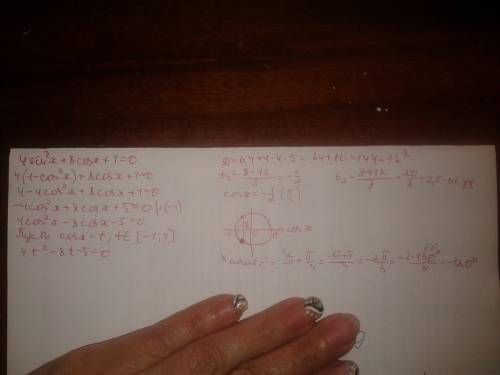 4 sin²x + 8cosx + 1 = 0
4(1-cos²x) + 8cosx + 1 = 0
4 - 4cos²x + 8cosx + 1 = 0
-4cos²x + 8cosx + 5 = 0 |·(-1)
4cos²x - 8cosx - 5 = 0
Пусть cosx = t, t∈[-1;1]
4t² - 8t - 5 = 0
D = 64 + 4·4·5 = 64 + 80 = 144 = 12²
t₁ = (8-12)/8 = -1/2
t₂ = (8+12)/8 = 20/8 = 2,5 -
cosx = -1/2
cosx
= -2π/3 = -2·180°/3 = -120°